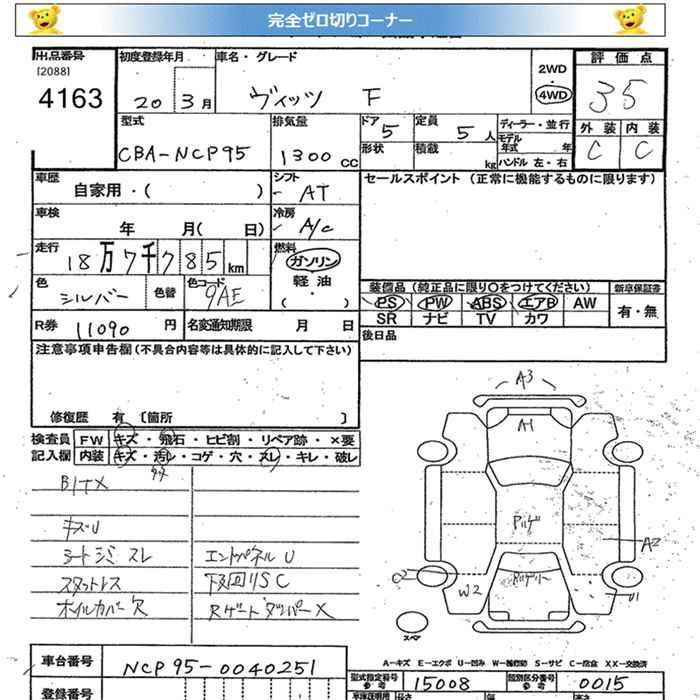 完全ゼロ切りコーナー
出品番号 初度登録年月 車名・グレード 評価点
[2088] 2WD
4163 20 3月 ヴィッツ F 4WD 35
型式 排気量 ドア 5 定員 5人 ディーラー・並行 外装 内装
CBA-NCP95 1300cc 形状 積載 kg モデル年式 年 C C
ハンドル 左・右
車歴 自家用・( ) シフト AT セールスポイント (正常に機能するものに限ります)
車検 年 月( 日) 冷房 A/C
走行 18万7千785km 燃料 ガソリン
軽油
( ・ )
色 シルバー 色替 色コード 9AE 装備品 (純正品に限り○をつけてください) 新車保証書
PS PW ABS エアB AW 有・無
R券 11090円 名変通知期限 月 日 SR ナビ TV カワ
注意事項申告欄(不具合内容等は具体的に記入して下さい) 後日品
修復歴 有 [箇所 ]
検査員 FW キズ・飛石・ヒビ割・リペア跡・×要
記入欄 内装 キズ・汚レ・コゲ・穴・スレ・キレ・破レ
キズU
シートシミ スレ エンドパネルU
スタットレス 下回リSC
ホイルカバー欠 RゲートダンパーX
A3
A1
A2
C2
W2
U1
スペア
A-キズ E-エクボ U-凹み W-補修跡 S-サビ C-腐食 XX-交換済
車台番号 NCP95-0040251 型式指定番号 参考 15008 類別区分番号 参考 0015
登録番号